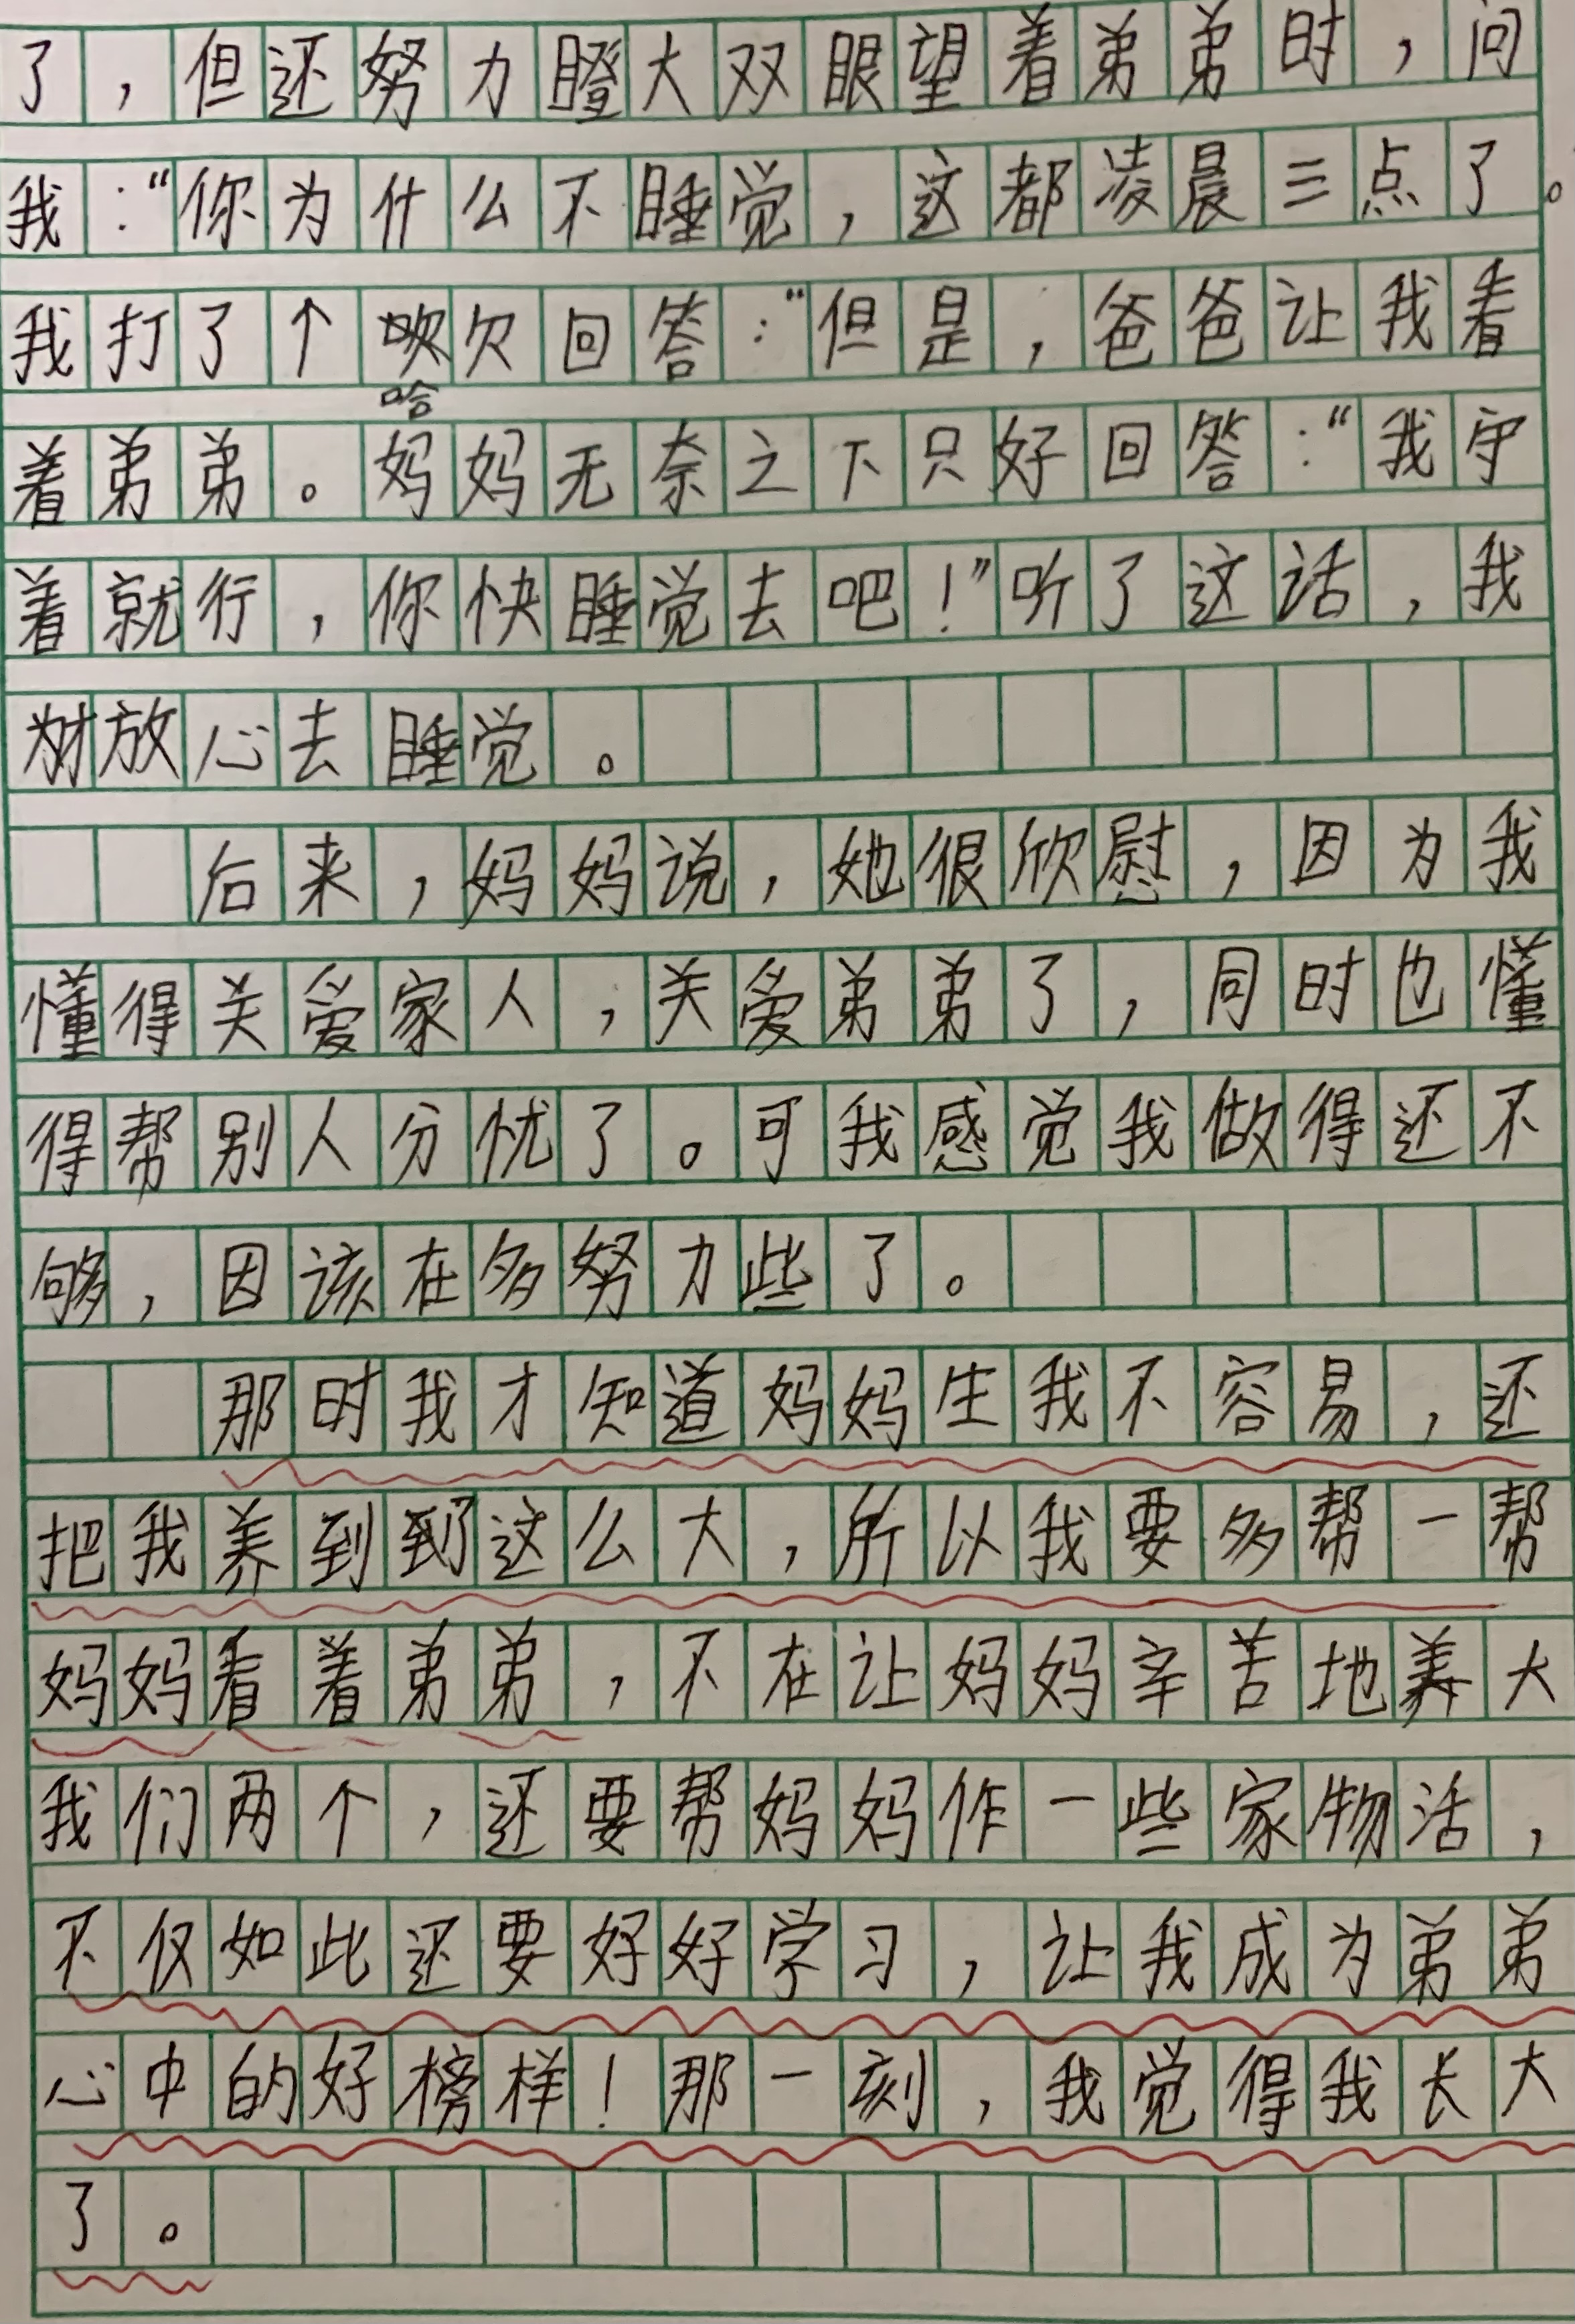 了，但还努力瞪大双眼望着弟弟时，问
我：“你为什么不睡觉，这都凌晨三点了。
我打了个吹欠回答：“但是，爸爸让我看
哈
着弟弟。妈妈无奈之下只好回答：“我守
着就行，你快睡觉去吧！”听了这话，我
才放心去睡觉。
后来，妈妈说，她很欣慰，因为我
懂得关爱家人，关爱弟弟了，同时也懂
得帮别人分忧了。可我感觉我做得还不
够，因该在多努力些了。
那时我才知道妈妈生我不容易，还
把我养到到了这么大，所以我要多帮一帮
妈妈看着弟弟，不在让妈妈辛苦地养大
我们两个，还要帮妈妈作一些家物活，
不仅如此还要好好学习，让我成为弟弟
心中的好榜样！那一刻，我觉得我长大
了。